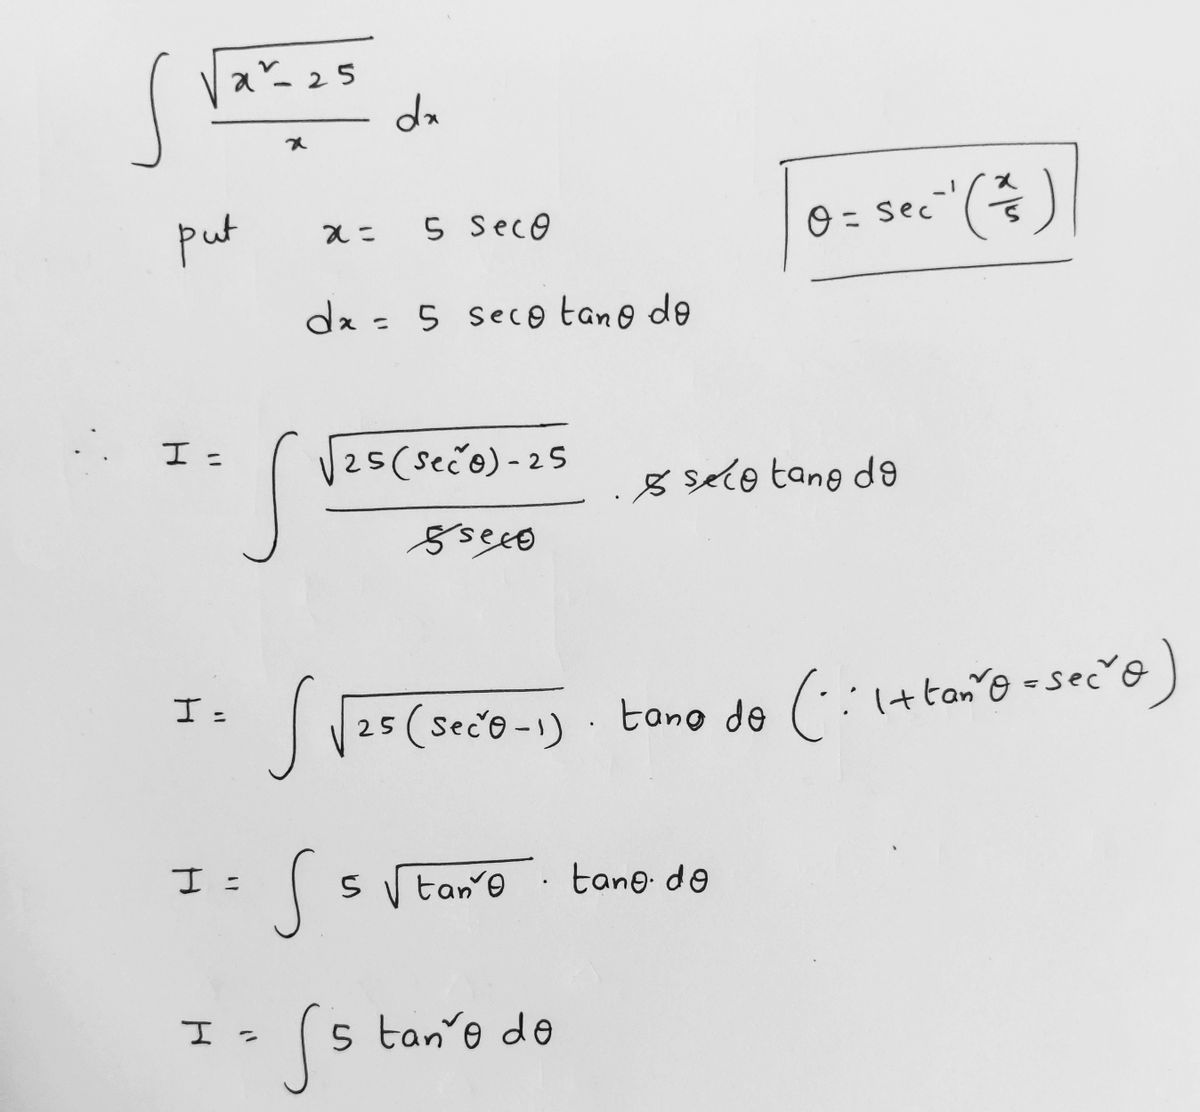 ∫ √(x² - 25) / x dx
θ = sec⁻¹(x/5)
put x = 5 secθ
dx = 5 secθ tanθ dθ
∴ I = ∫ √(25(sec²θ) - 25) / 5 secθ . 5 secθ tanθ dθ
I = ∫ √(25(sec²θ - 1)) . tanθ dθ (∵ 1 + tan²θ = sec²θ)
I = ∫ 5 √(tan²θ) . tanθ . dθ
I = ∫ 5 tan²θ dθ